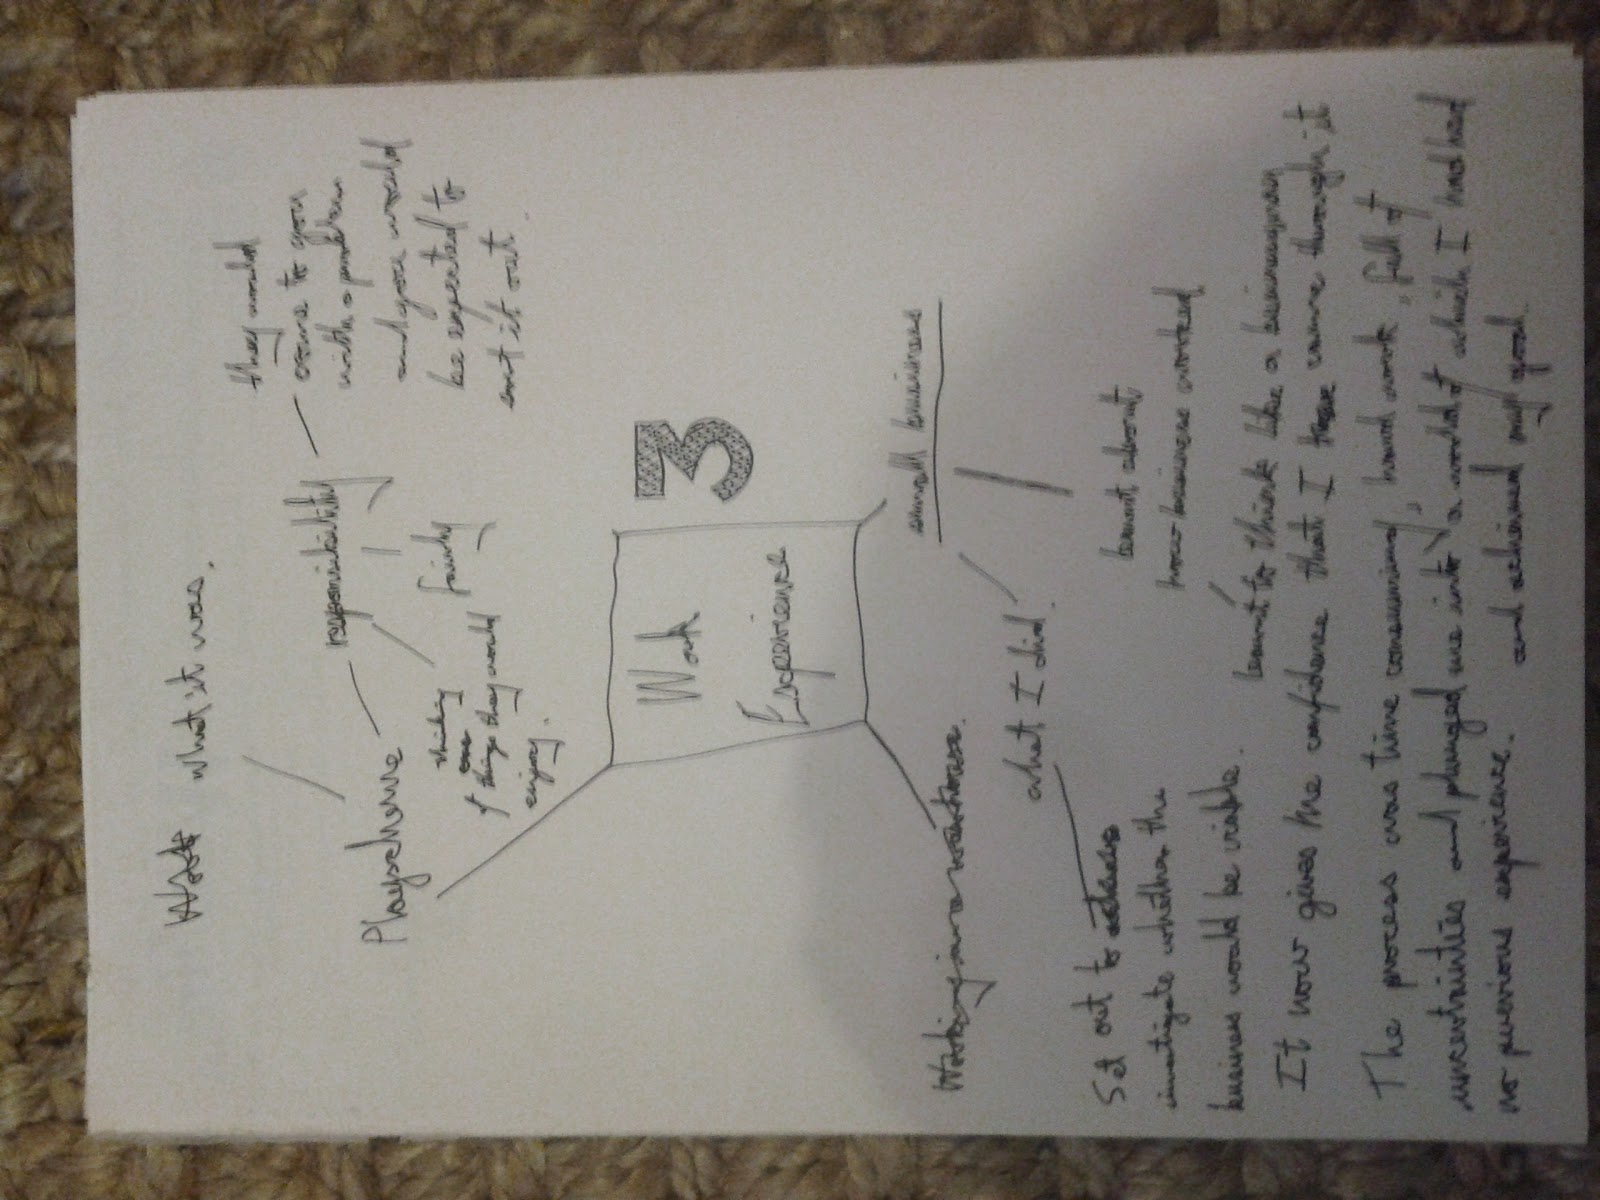 What what it was.
Playscheme
responsibility
they would
come to you
with a problem
and you would
be expected to
sort it out.
fairly
things they would
enjoy.
Work
Experience
3
small business
what I did.
Set out to
investigate whether the
business would be viable.
learnt about
how business worked
learnt to think like a businessman
It now gives me confidence that I have came through it
The process was time consuming, hard work, full of
uncertainties and plunged me into a world of which I had had
no previous experience.
and achieved my goal.